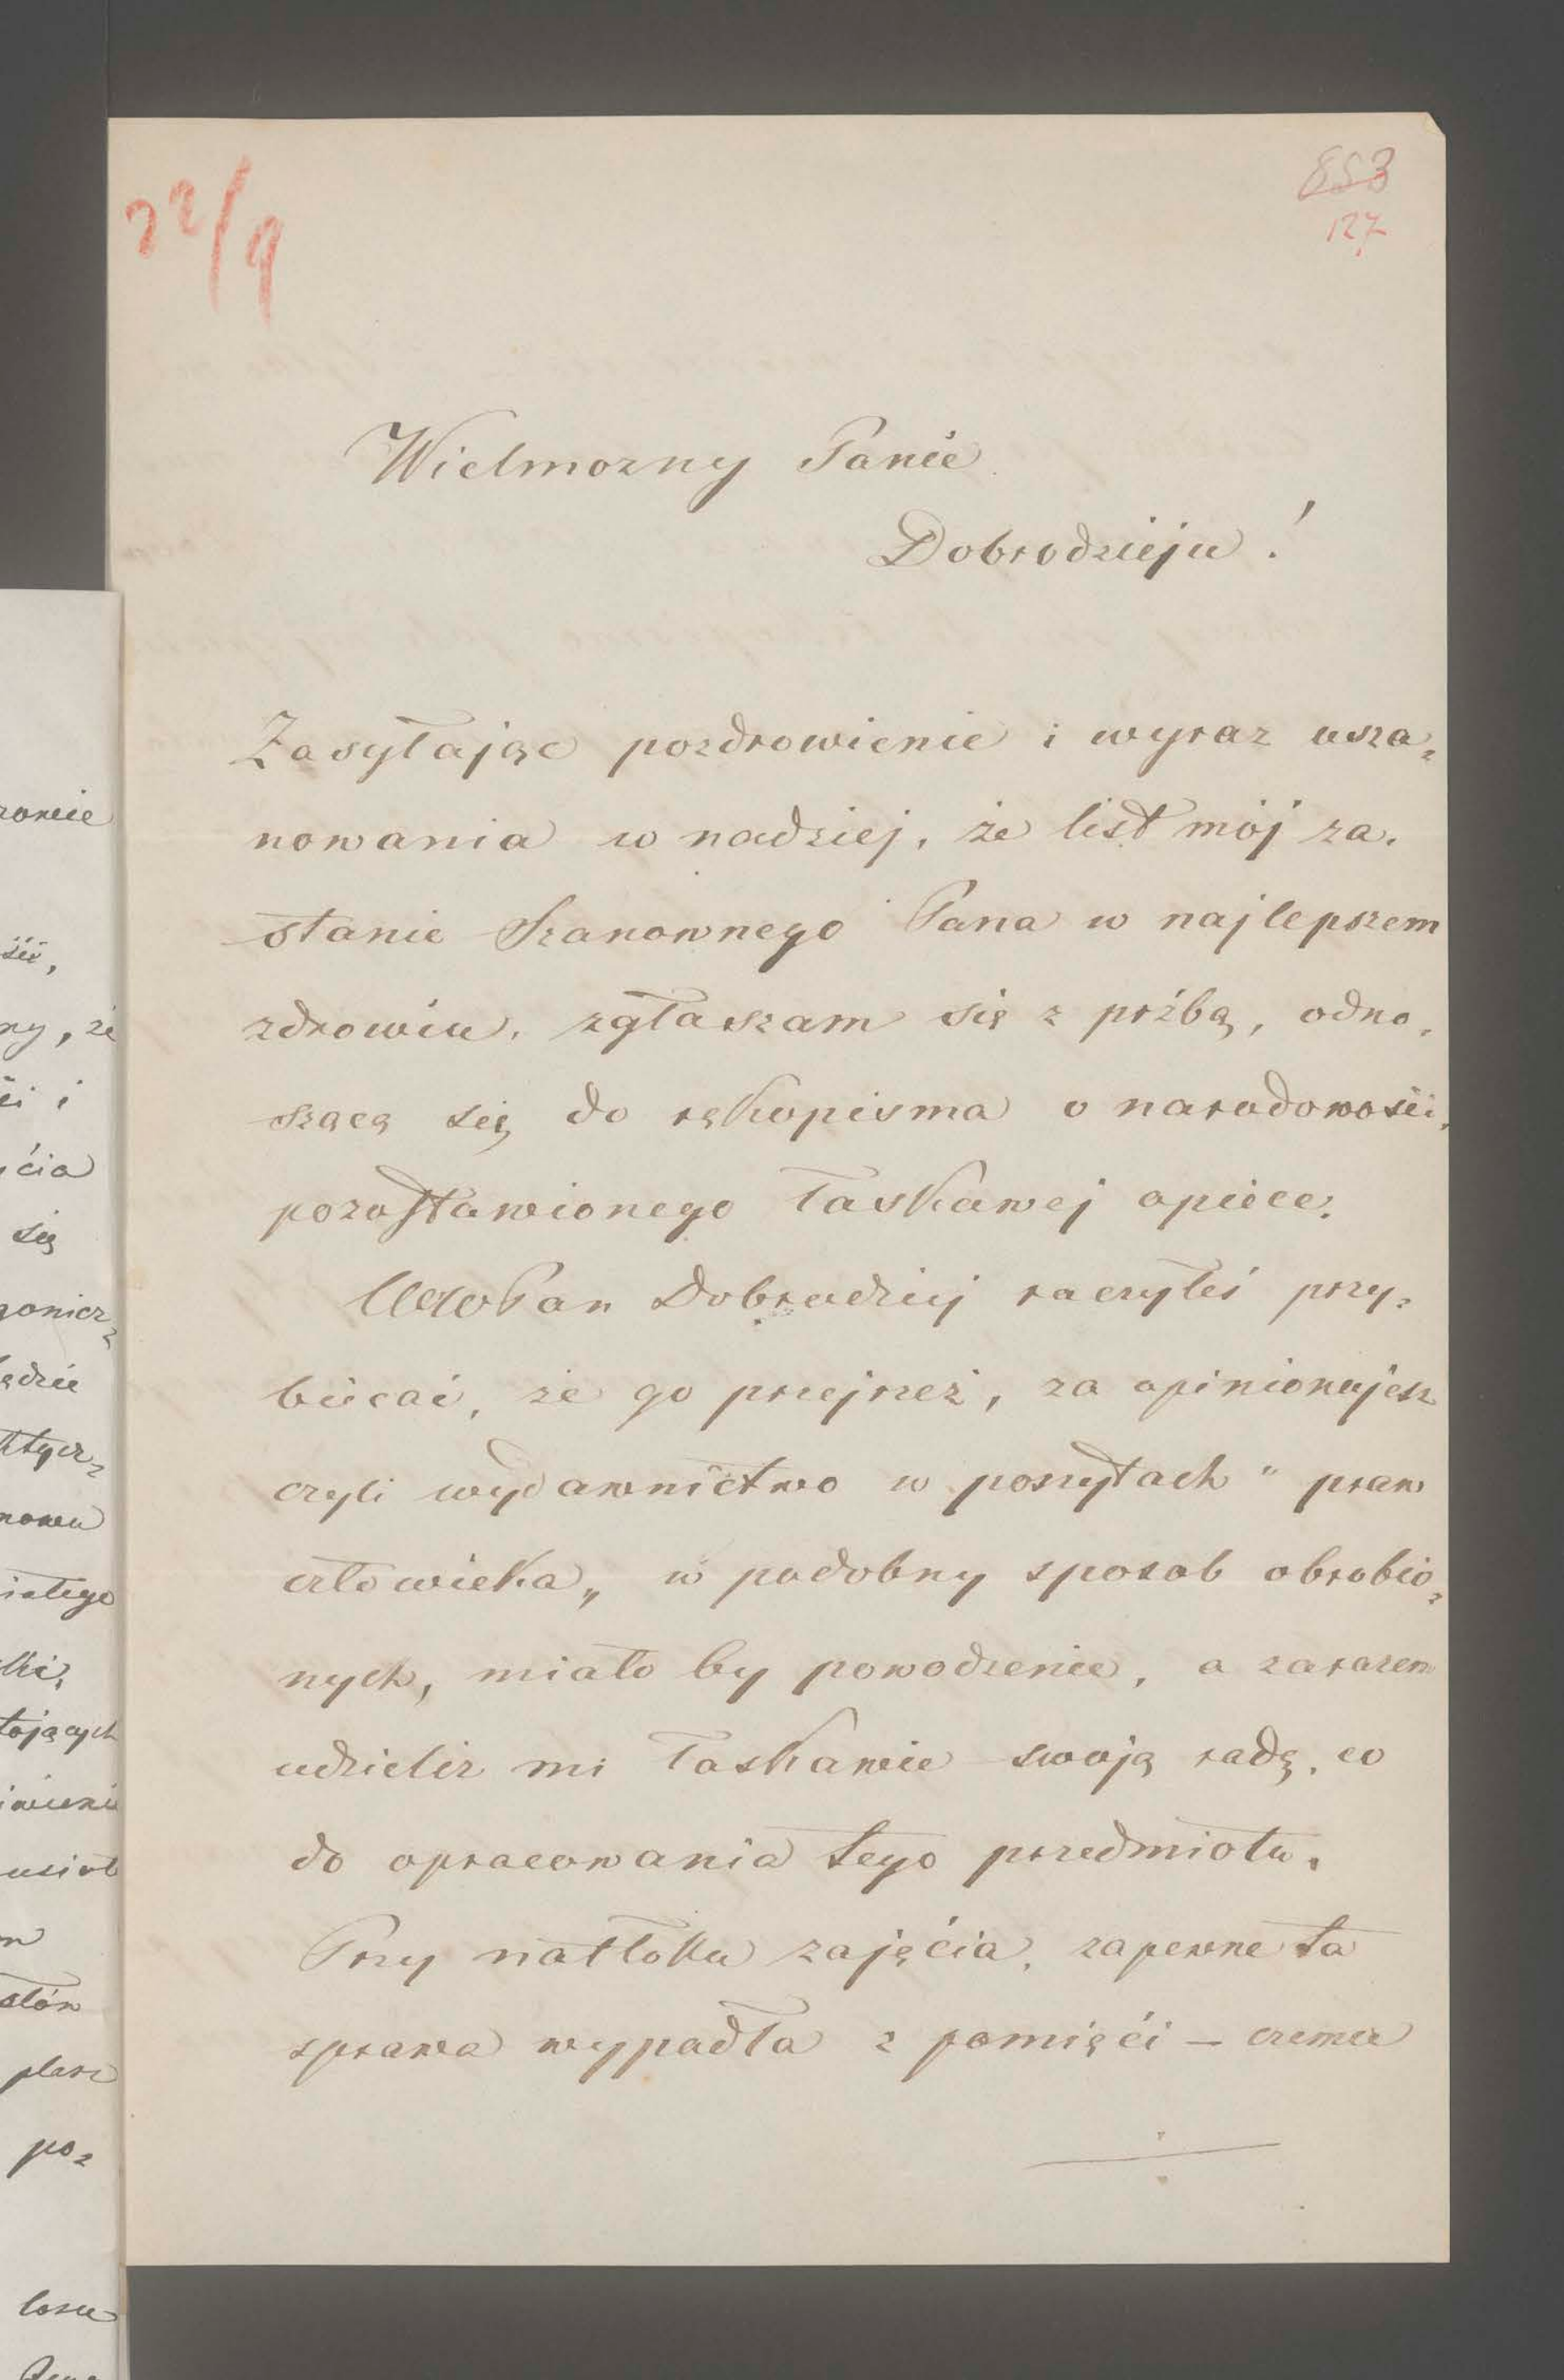 22/9
853
127
Wielmozny Panie
Dobrodzieju!
Zasyłając pozdrowienie i wyraz usza=
nowania w nadziej, że list mój za=
stanie Szanownego Pana w najlepszem
zdrowiu, zgłaszam się z prźbą, odno=
szącą się do rękopisma o narodowości,
pozostawionego łaskawej opiece.
Pan Dobrodziej raczyłeś przy=
biecać, że go przejrzeż, za opinionujesz
czyli wydawnictwo w poszytach " praw
człowieka„ w podobny sposob obrobio=
nych, miało by powodzenie, a zarazem
udzielisz mi łaskawie swoją radę, co
do opracowania tego przedmiotu.
Przy natłoku zajęćia, zapewne ta
sprawa wypadła z pamięći – czemu
zowie
śći,
ny, że
ści i
ścia
się
gonicz=
ędzie
ktycz=
nowu
iałego
lki,
tojących
usiał
m
ałów
plarz
po=
losu